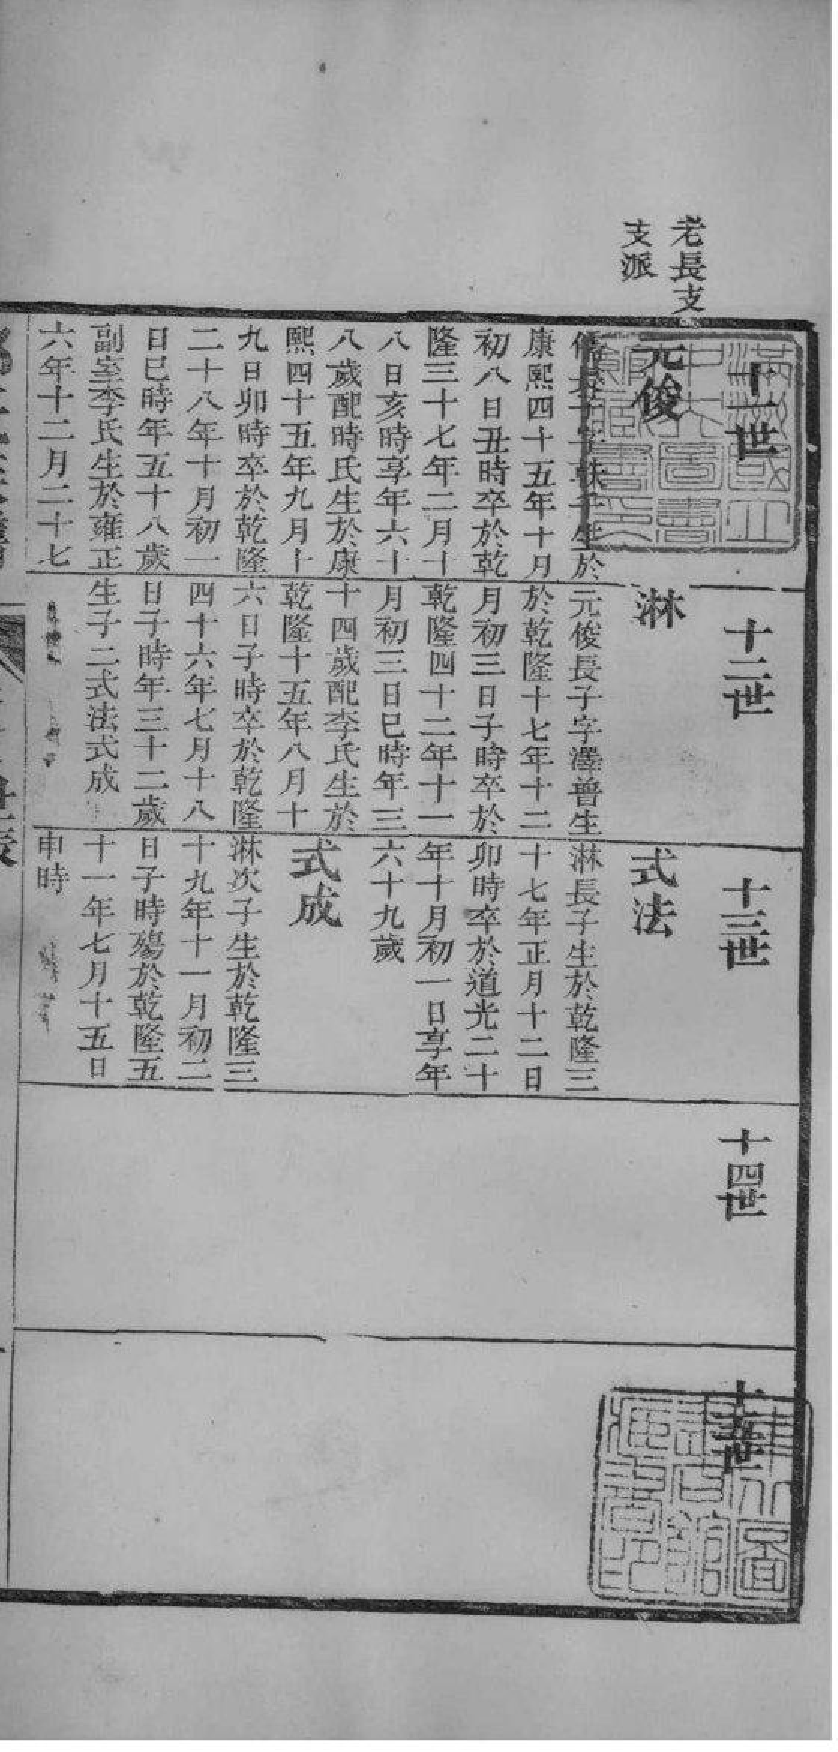 老長支
支派
十一世
元俊
子生於
康熙四十五年十月
初八日丑時卒於乾
隆三十七年二月十
八日亥時享年六十
八歲配時氏生於康
熙四十五年九月十
九日卯時卒於乾隆
二十八年十月初一
日巳時年五十八歲
副室李氏生於雍正
六年十二月二十七
十二世
淋
元俊長子字澤普生
於乾隆十七年十二
月初三日子時卒於
乾隆四十二年十一
月初三日巳時年三
十四歲配李氏生於
乾隆十五年八月十
六日子時卒於乾隆
四十六年七月十八
日子時年三十二歲
生子二式法式成
十三世
式法
淋長子生於乾隆三
十七年正月十二日
卯時卒於道光二十
年十月初一日享年
六十九歲
式成
淋次子生於乾隆三
十九年十一月初二
日子時殤於乾隆五
十一年七月十五日
申時
十四世
十五世